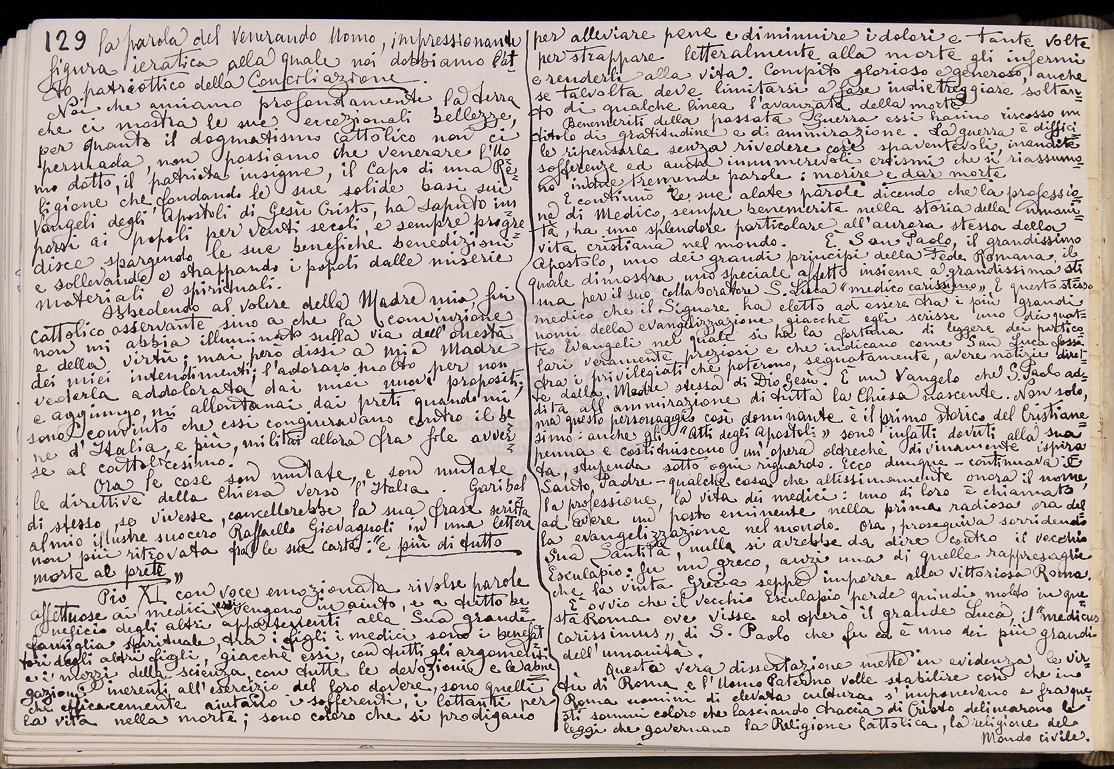 129 la parola del Venerando Uomo, impressionante
figura ieratica alla quale noi dobbiamo l'at=
to patriottico della Conciliazione.
Noi che amiamo profondamente la terra
che ci mostra le sue eccezionali bellezze,
per quanto il dogmatismo Cattolico non ci
persuada, non possiamo che venerare l'Uo
mo dotto, il patriota insigne, il Capo di una Re=
ligione che fondando le sue solide basi sui
Vangeli degli Apostoli di Gesù Cristo, ha saputo im=
porsi ai popoli per venti secoli, e sempre progre
disce spargendo le sue benefiche benedizioni
e sollevando e strappando i popoli dalle miserie
materiali e spirituali.
Obbedendo al volere della Madre mia, fui
Cattolico osservante sino a che la convinzione
non mi abbia illuminato sulla via dell'onestà
e della virtù; mai però dissi a mia Madre
dei miei intendimenti; l'adoravo molto per non
vederla addolorata dai miei nuovi propositi,
e aggiungo, mi allontanai dai preti quando mi
sono convinto che essi congiuravano contro il be
ne d'Italia, e più, militai allora fra file avver=
se al cattolicesimo.
Ora le cose son mutate, e son mutate
le direttive della Chiesa verso l'Italia. Garibal
di stesso, se vivesse, cancellerebbe la sua frase scritta
al mio illustre suocero Raffaello Giovagnoli in una lettera
non più ritrovata fra le sue carte: "e più di tutto
morte al prete"
Pio XI, con voce emozionata rivolse parole
affettuose ai medici essi vengono in aiuto, e a tutto be=
neficio degli altri appartenenti alla Sua grande
famiglia spirituale, tra i figli i medici sono i benefat
tori degli altri figli, giacchè essi, con tutti gli argomenti
e i mezzi della scienza, con tutte le devozioni e le abne
gazioni inerenti all'esercizio del loro dovere, sono quelli
che efficacemente aiutano i sofferenti, i lottanti per
la vita nella morte; sono coloro che si prodigano
per alleviare pene e diminuire i dolori e tante volte
per strappare letteralmente alla morte gli infermi
e renderli alla vita. Compito glorioso e generoso, anche
se talvolta deve limitarsi a fare indietreggiare soltan=
to di qualche linea l'avanzata della morte.
Benemeriti della passata Guerra essi hanno riscosso un
titolo di gratitudine e di ammirazione. La guerra è diffici
le ripensarla senza rivedere cose spaventevoli, inaudite
sofferenze ed anche innumerevoli eroismi che si riassumo=
no in due tremende parole: morire e dar morte.
E continuò le sue alate parole dicendo che la professio=
ne di Medico, sempre benemerita nella storia della umani=
tà, ha uno splendore particolare all'aurora stessa della
vita cristiana nel mondo. È San Paolo, il grandissimo
Apostolo, uno dei grandi principi della Fede Romana, il
quale dimostra uno speciale affetto insieme a grandissima sti
ma per il suo collaboratore S. Luca "medico carissimo". È questo stesso
medico che il Signore ha eletto ad essere tra i più grandi
nomi della evangelizzazione giacchè egli scrisse uno dei quat=
tro Evangeli nel quale si ha la fortuna di leggere dei partico
lari veramente preziosi e che indicano come San Luca fosse
tra i privilegiati che poterono, segnatamente, avere notizie diret=
te dalla Madre stessa di Dio Gesù. È un Vangelo che S. Paolo ad=
dita all'ammirazione di tutta la Chiesa nascente. Non solo,
ma questo personaggio così dominante è il primo storico del Cristiane
simo: anche gli "Atti degli Apostoli" sono infatti dovuti alla sua
penna e costituiscono un'opera oltrechè divinamente ispira
ta, stupenda sotto ogni riguardo. Ecco dunque - continuava il
Santo Padre - qualche cosa che altissimamente onora il nome
la professione, la vita dei medici: uno di loro è chiamato
ad avere un posto eminente nella prima radiosa ora del
la evangelizzazione nel mondo. Ora, proseguiva sorridendo
Sua Santità, nulla si avrebbe da dire contro il vecchio
Esculapio: fu un greco, anzi una di quelle rappresaglie
che la vinta Grecia seppe imporre alla vittoriosa Roma.
È ovvio che il vecchio Esculapio perde quindi molto in que
sta Roma ove visse ed operò il grande Luca, il "medicus
carissimus" di S. Paolo che fu ed è uno dei più grandi
dell'umanità.
Questa vera dissertazione mette in evidenza le vir=
tù di Roma e l'Uomo Paterno volle stabilire così che in
Roma uomini di elevata cultura s'imponevano e fra que
sti sommi coloro che lasciando traccia di Cristo delinearono le
leggi che governano la Religione Cattolica, la religione del
Mondo civile.